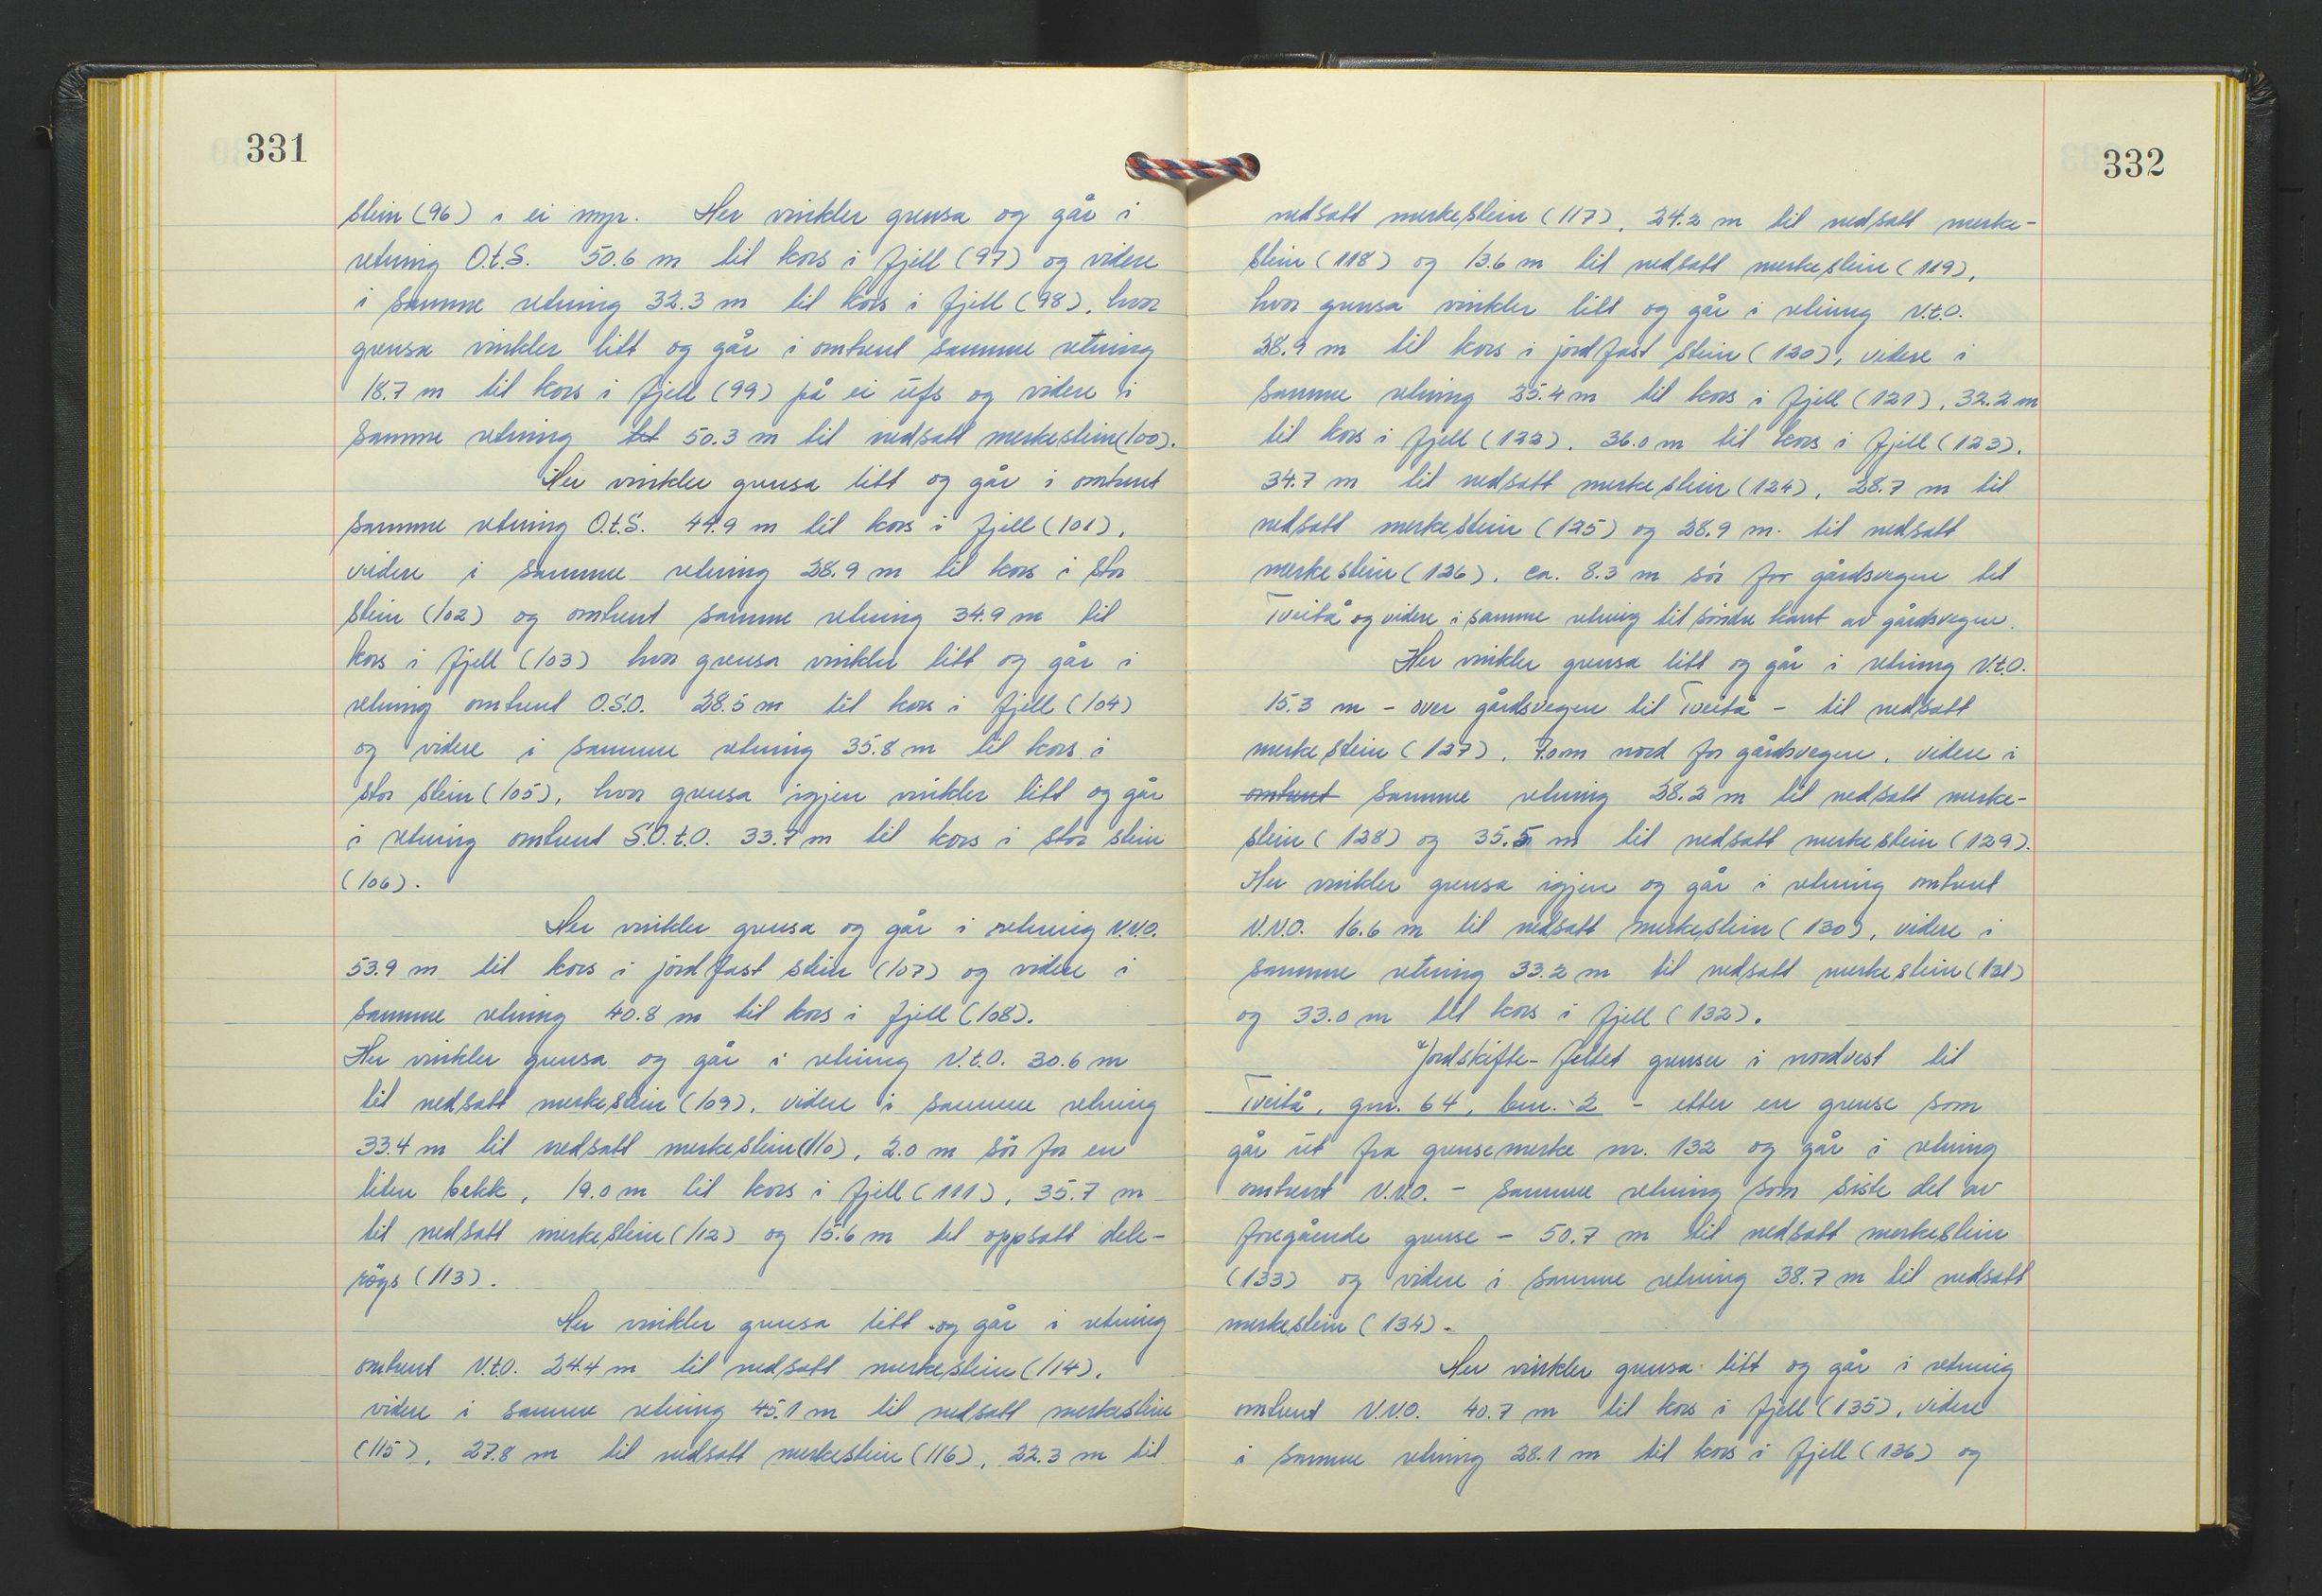 331
stein (96) i ei myr. Her vinkler grensa og går i
retning O.t.S. 50.6 m til kors i fjell (97) og videre
i samme retning 32.3 m til kors i fjell (98), hvor
grensa vinkler litt og går i omtrent samme retning
18.7 m til kors i fjell (99) på ei ufs og videre i
samme retning til 50.3 m til nedsatt merkestein (100).
Her vinkler grensa litt og går i omtrent
samme retning O.t.S. 44.9 m til kors i fjell (101),
videre i samme retning 28.9 m til kors i stor
stein (102) og omtrent samme retning 34.9 m til
kors i fjell (103) hvor grensa vinkler litt og går i
retning omtrent O.S.O. 28.5 m til kors i fjell (104)
og videre i samme retning 35.8 m til kors i
stor stein (105), hvor grensa igjen vinkler litt og går
i retning omtrent S.O.t.O. 33.7 m til kors i stor stein
(106).
Her vinkler grensa og går i retning N.N.O.
53.9 m til kors i jordfast stein (107) og videre i
samme retning 40.8 m til kors i fjell (108).
Her vinkler grensa og går i retning N.t.O. 30.6 m
til nedsatt merkestein (109), videre i samme retning
33.4 m til nedsatt merkestein (110), 2.0 m sör for en
liten bekk, 19.0 m til kors i fjell (111), 35.7 m
til nedsatt merkestein (112) og 15.6 m til oppsatt dele-
rögs (113).
Her vinkler grensa litt og går i retning
omtrent N.t.O. 24.4 m til nedsatt merkestein (114),
videre i samme retning 45.1 m til nedsatt merkestein
(115), 27.8 m til nedsatt merkestein (116), 22.3 m til
332
nedsatt merkestein (117), 24.2 m til nedsatt merke-
stein (118) og 13.6 m til nedsatt merkestein (119),
hvor grensa vinkler litt og går i retning N.t.O.
28.9 m til kors i jordfast stein (120), videre i
samme retning 25.4 m til kors i fjell (121), 32.2 m
til kors i fjell (122), 36.0 m til kors i fjell (123),
34.7 m til nedsatt merkestein (124), 28.7 m til
nedsatt merkestein (125) og 28.9 m til nedsatt
merkestein (126), ca. 8.3 m sör for gårdsvegen til
Tveitå og videre i samme retning til söndre kant av gårdsvegen.
Her vinkler grensa litt og går i retning N.t.O.
15.3 m - over gårdsvegen til Tveitå - til nedsatt
merkestein (127), 7.0 m nord for gårdsvegen, videre i
omtrent samme retning 38.2 m til nedsatt merke-
stein (128) og 35.5 m til nedsatt merkestein (129).
Her vinkler grensa igjen og går i retning omtrent
N.N.O. 16.6 m til nedsatt merkestein (130), videre i
samme retning 33.2 m til nedsatt merkestein (131)
og 33.0 m til kors i fjell (132).
Jordskifte-feltet grenser i nordvest til
Tveitå, gnr. 64, bnr. 2 - etter en grense som
går ut fra grensemerke nr. 132 og går i retning
omtrent N.N.O. - samme retning som siste del av
foregående grense - 50.7 m til nedsatt merkestein
(133) og videre i samme retning 38.7 m til nedsatt
merkestein (134).
Her vinkler grensa litt og går i retning
omtrent N.N.O. 40.7 m til kors i fjell (135), videre
i samme retning 28.1 m til kors i fjell (136) og